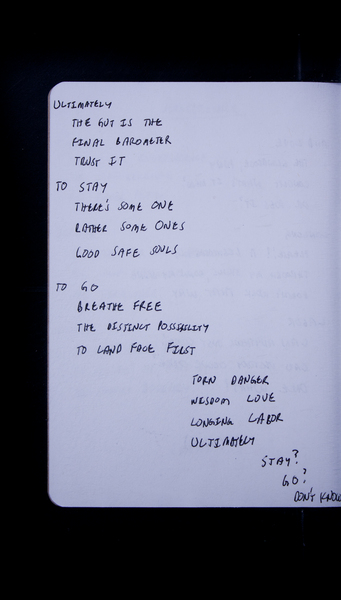 ULTIMATELY
THE GUT IS THE
FINAL BAROMETER
TRUST IT
TO STAY
THERE'S SOME ONE
RATHER SOME ONES
GOOD SAFE SOULS
TO GO
BREATHE FREE
THE DISTINCT POSSIBILITY
TO LAND FACE FIRST
TORN DANGER
WISDOM LOVE
LONGING LABOR
ULTIMATELY
STAY?
GO?
DON'T KNOW